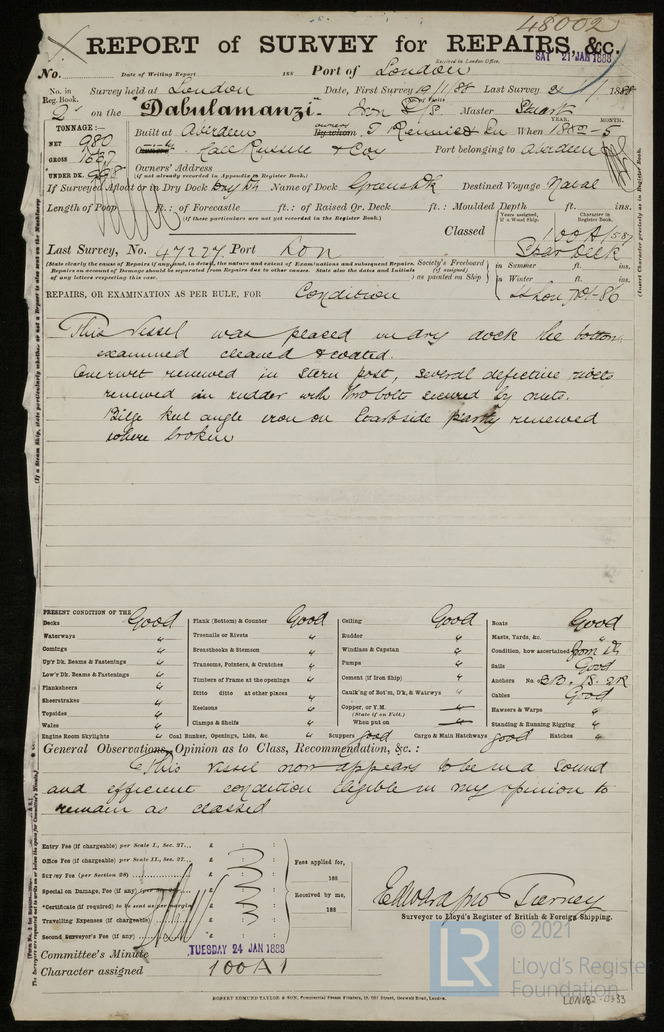 48002
REPORT of SURVEY for REPAIRS, &c.
Received in London Office.
SAT 21 JAN 1888
No. Date of Writing Report 188 Port of London
No. in Reg. Book. Survey held at London Date, First Survey 19/1/88 Last Survey 188
on the "Dabulamanzi" Iron Master Stuart
TONNAGE:—
NET 980
GROSS
UNDER DK. 998
Built at Aberdeen When 1882-5
YEAR. MONTH.
Hall Russell & Co Port belonging to Aberdeen
Owners' Address
(if not already recorded in Appendix to Register Book.)
If Surveyed Afloat or in Dry Dock Dry Dk Name of Dock Greens Dk Destined Voyage Natal
Length of Poop ft.: of Forecastle ft.: of Raised Qr. Deck ft.: Moulded Depth ft. ins.
(If these particulars are not yet recorded in the Register Book.)
Years assigned, if a Wood Ship. Character in Register Book.
Classed 100A1 5.87
Spar Deck
Last Survey, No. 47227 Port Lon
Society's Freeboard (if assigned) as painted on Ship
in Summer ft. ins.
in Winter ft. ins.
(State clearly the cause of Repairs if any, and, in detail, the nature and extent of Examinations and subsequent Repairs. Repairs on account of Damage should be separated from Repairs due to other causes. State also the dates and Initials of any letters respecting this case.
REPAIRS, OR EXAMINATION AS PER RULE, FOR Condition
This Vessel was placed in dry dock the bottom
examined cleaned & coated.
One rivet renewed in stern post, several defective rivets
renewed in rudder with thro bolts secured by nuts.
Bilge keel angle iron on Starbside partly renewed
where broken
PRESENT CONDITION OF THE
Decks Good
Waterways "
Comings "
Up'r Dk. Beams & Fastenings "
Low'r Dk. Beams & Fastenings "
Planksheers "
Sheerstrakes "
Topsides "
Wales "
Engine Room Skylights "
Plank (Bottom) & Counter Good
Treenails or Rivets "
Breasthooks & Stemson "
Transoms, Pointers, & Crutches "
Timbers of Frame at the openings "
Ditto ditto at other places "
Keelsons "
Clamps & Shelfs "
Coal Bunker, Openings, Lids, &c. "
Ceiling Good
Rudder "
Windlass & Capstan "
Pumps "
Cement (if Iron Ship) "
Caulk'ng of Bot'm, D'k, & Wat'rways "
Copper, or Y.M. —
(State if on Felt.)
When put on —
Scuppers good Cargo & Main Hatchways good
Boats Good
Masts, Yards, &c. "
Condition, how ascertained from Dk
Sails Good
Anchors No. 3B. 1S. 2K
Cables Good
Hawsers & Warps "
Standing & Running Rigging "
Hatches "
General Observations, Opinion as to Class, Recommendation, &c.:
This Vessel now appears to be in a sound
and efficient condition eligible in my opinion to
remain as classed
Entry Fee (if chargeable) per Scale I., Sec. 27... £ : :
Office Fee (if chargeable) per Scale II., Sec. 27... £ : :
Survey Fee (per Section 28) £ : :
Special on Damage, Fee (if any)
*Certificate (if required) to be sent as per margin
Travelling Expenses (if chargeable)
Second Surveyor's Fee (if any) £ : :
Fees applied for, 188
Received by me, 188
Surveyor to Lloyd's Register of British & Foreign Shipping.
Committee's Minute TUESDAY 24 JAN 1888
Character assigned 100A1
ROBERT EDMUND TAYLOR & SON, Commercial Steam Printers, 19, Old Street, Goswell Road, London.
© 2021
LR Lloyd's Register
Foundation
LON682-0333